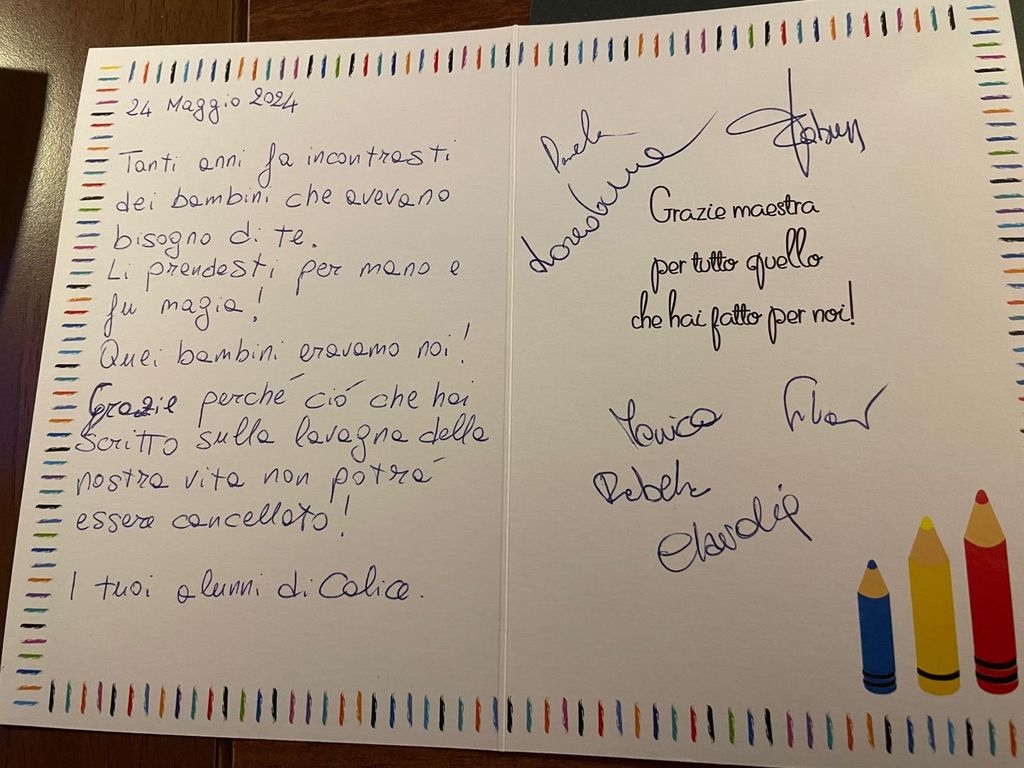 24 Maggio 2024
Tanti anni fa incontrasti
dei bambini che avevano
bisogno di te.
Li prendesti per mano e
fu magia!
Quei bambini eravamo noi!
Grazie perché ció che hai
scritto sulla lavagna della
nostra vita non potrá
essere cancellato!
I tuoi alunni di Calice.
Grazie maestra
per tutto quello
che hai fatto per noi!
Monica
Claudia